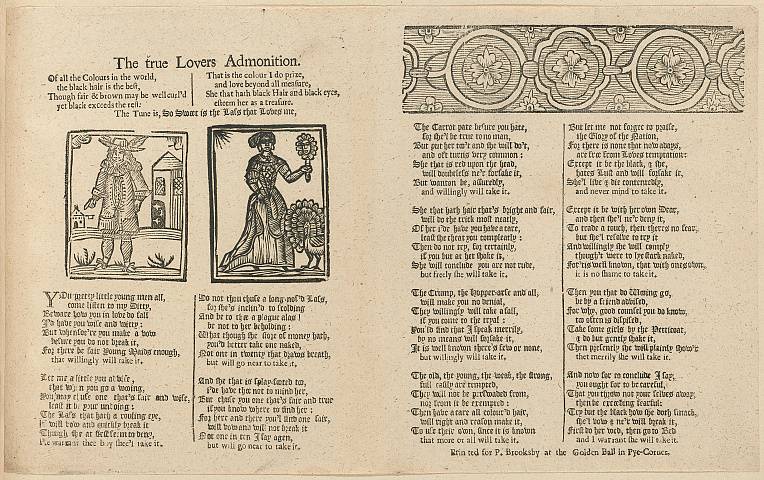 The true Lovers Admonition.
Of all the Colours in the world,
the black hair is the best,
Though fair & brown may be well curl'd
yet black exceeds the rest:
That is the colour I do prize,
and love beyond all measure,
She that hath black Hair and black eyes,
esteem her as a treasure.
The Tune is, So Sweet is the Lass that Loves me,
YOu pretty little young men all,
come listen to my Ditty,
Beware how you in love do fall
I'd have you wise and witty:
But whensoe're you make a vow
besure you do not break it,
For there be fair Young Maids enough,
that willingly will take it.
Let me a little you advise,
that when you go a wooing,
You may chuse one that's fair and wise,
least it be your undoing:
The Lass that hath a rouling eye,
will vow and quickly break it
Though she at first seem to deny,
I'le warrant thee boy she'l take it.
Do not thou chuse a long-nos'd Lass,
for she's inclin'd to scolding
And be to thee a plague alas!
be not to her beholding:
What though she hope of money hath,
you'd better take one naked,
Not one in twenty that draws breath,
but will go near to take it.
And she that is splay-footed too,
i'de have thee not to mind her,
But chuse you one that's fair and true
if you know where to find her:
For here and there you'l find one fair,
will vow and will not break it
Not one in ten I say agen,
but will go near to take it.
The Carrot pate besure you hate,
for she'l be true to no man,
But put her to't and she will do't,
and oft turns very common:
She that is red upon the head,
will doubtless ne'r forsake it,
But wanton be, assuredly,
and willingly will take it.
She that hath hair that's bright and fair,
will do the trick most neatly,
Of her i'de have you have a care,
least she cheat you compleatly:
Then do not try, for certainly,
if you but at her shake it,
She will conclude you are not rude,
but freely she will take it.
The Crump, the Hopper-arse and all,
will make you no denial,
They willingly will take a fall,
if you come to the tryal:
You'ld find that I speak merrily,
by no means will forsake it,
It is well known there's few or none,
but willingly will take it.
The old, the young, the weak, the strong,
full easily are tempted,
They will not be perswaded from,
nor from it be exempted:
Then have a care all colour'd hair,
will right and reason make it,
To use their own, since it is known
that more or all will take it.
But let me not forget to praise,
the Glory of the Nation,
For there is none that now adays,
are free from Loves temptation:
Except it be the black, & she,
hates Lust and will forsake it,
She'l live & die contentedly,
and never mind to take it.
Except it be with her own Dear,
and then she'l ne'r deny it,
To trade a touch, then theres no fear,
but she'l resolve to try it
And willingly she will comply
though't were to lye stark naked,
For 'tis well known, that with ones own,
it is no shame to take it.
Then you that do a Wooing go,
be by a friend advised,
For why, good counsel you do know,
to often is despised,
Take some girls by the Petticoat,
& do but gently shake it,
Then presently she will plainly show't
thet merrily she will take it.
And now for to conclude I say,
you ought for to be careful,
That you throw not your selves away,
then be exceeding fearful:
Try but the black how she doth smack,
she'l vow & ne'r will break it,
First do her wed, then go to Bed
and I warrant she will take it.
Printed for P. Brooksby at the Golden Ball in Pye-Corner.